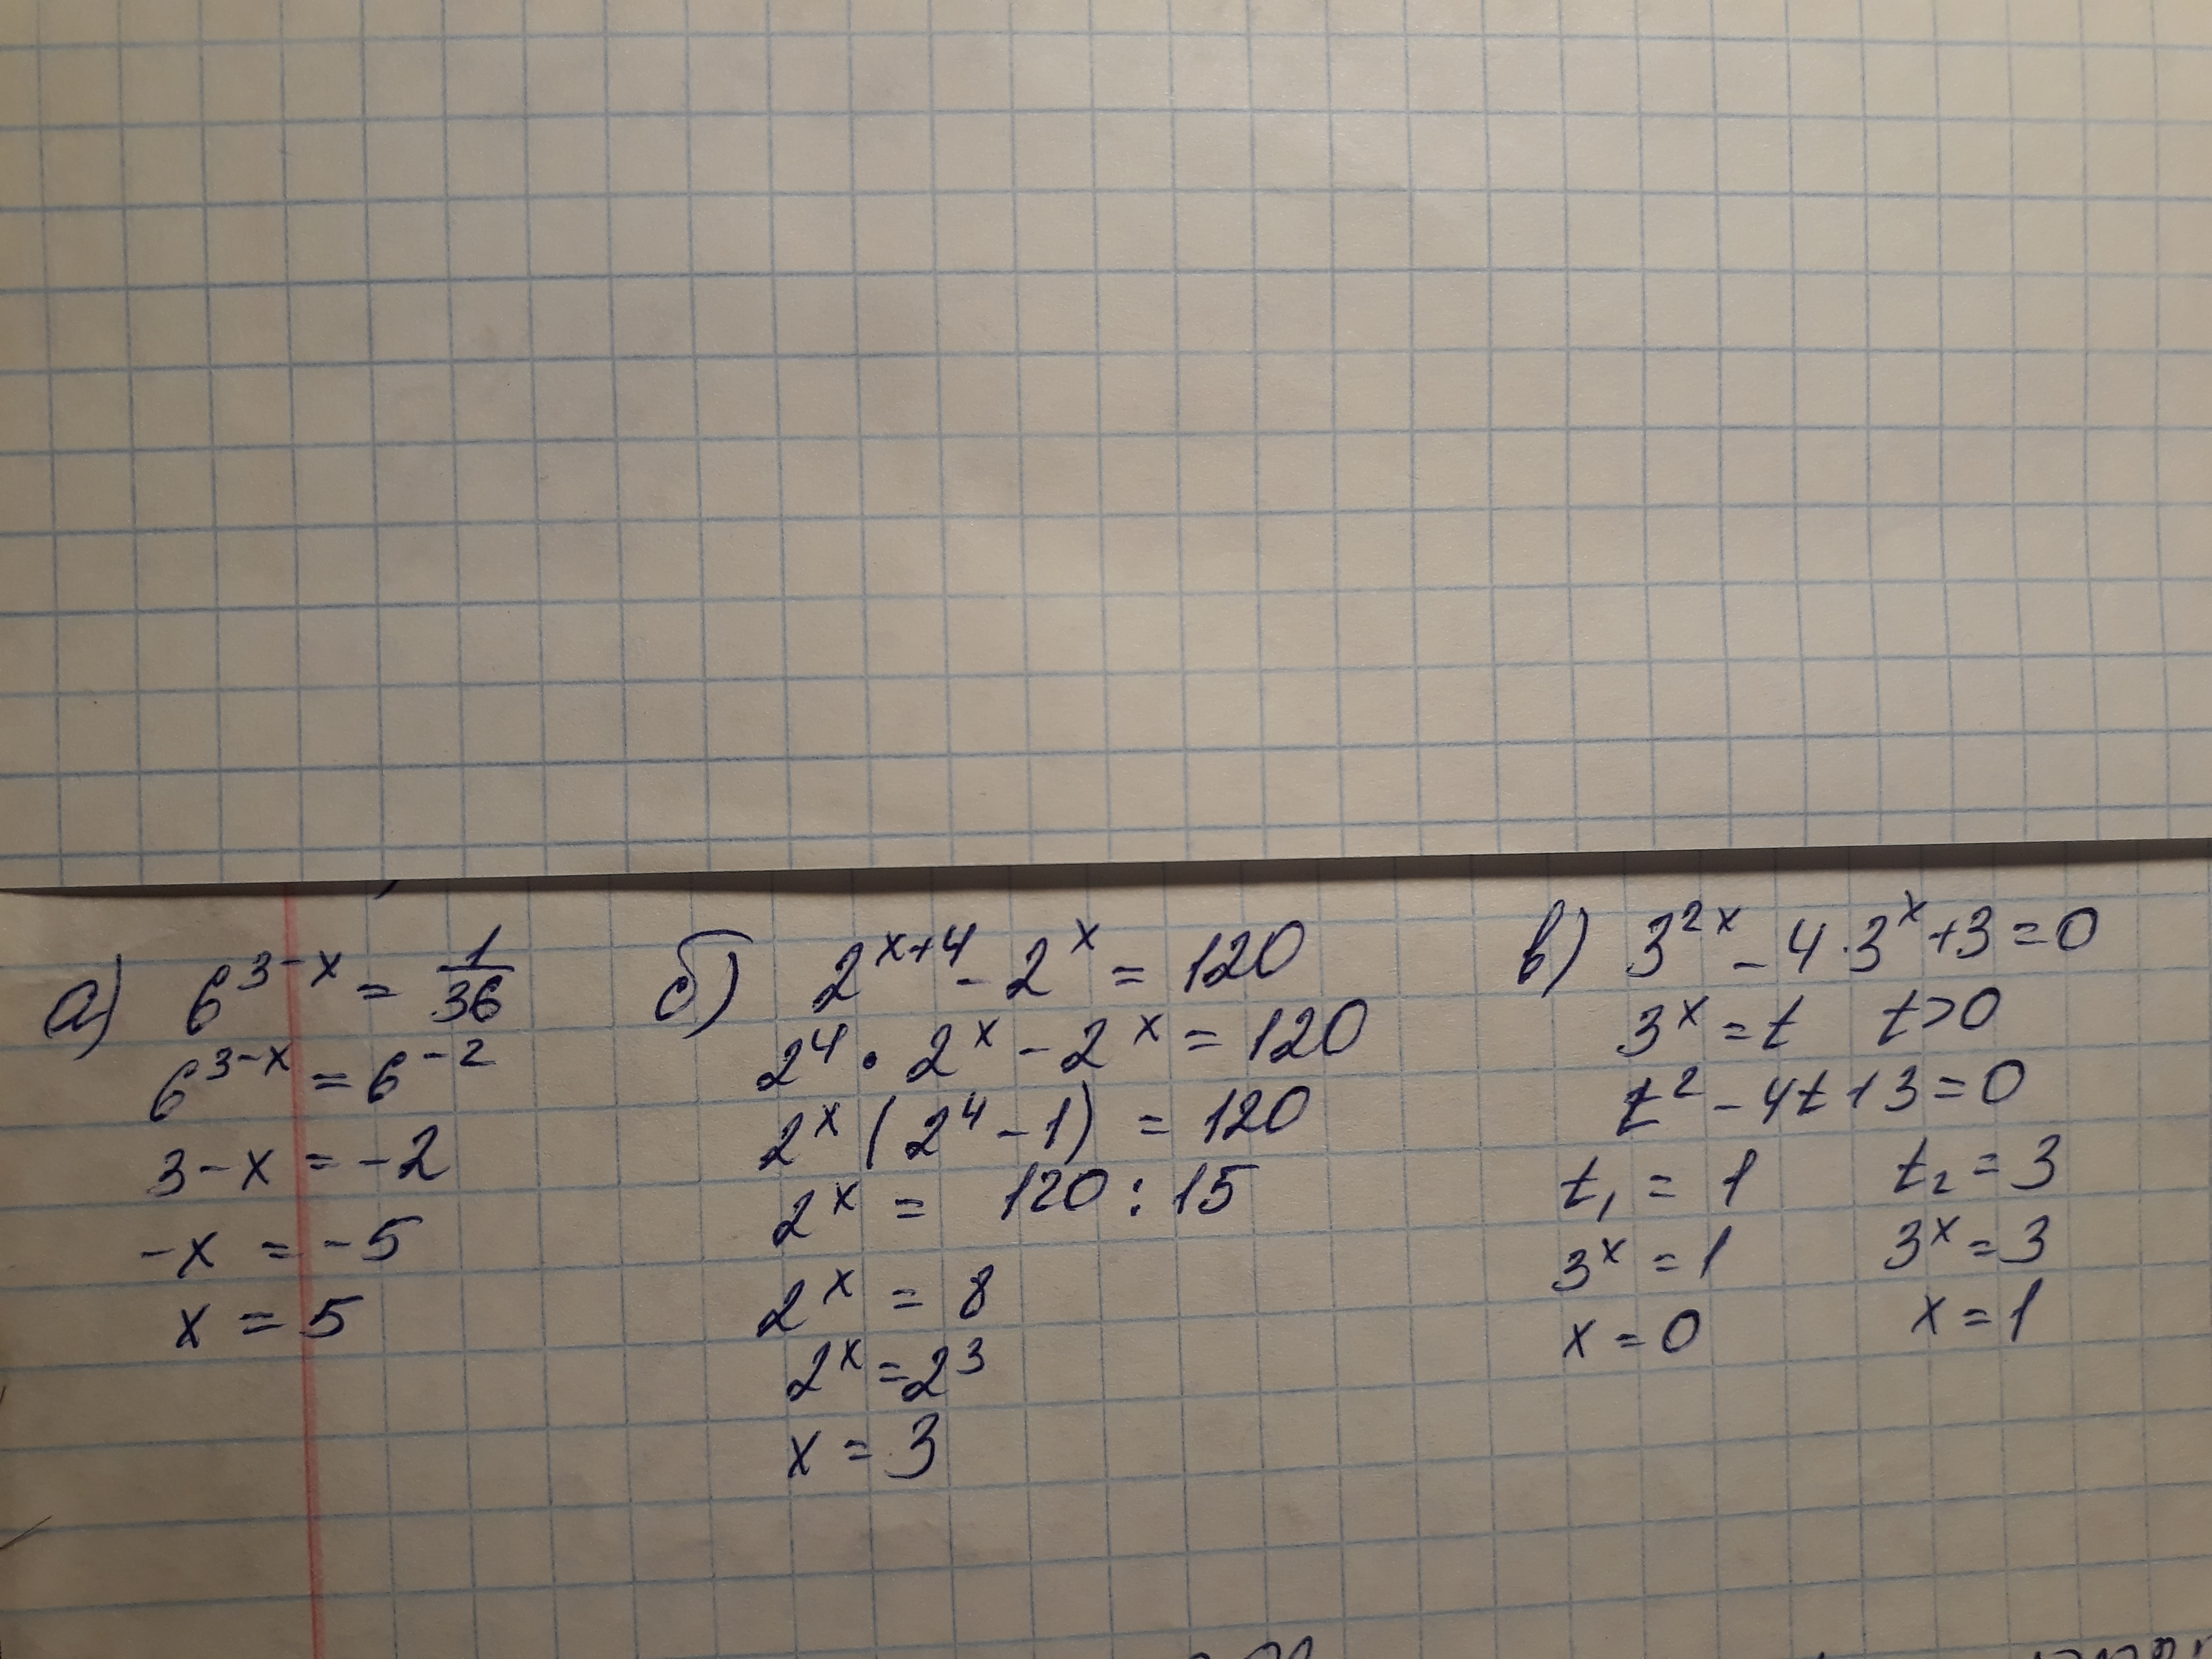 а) 6^(3-x) = 1/36
6^(3-x) = 6^(-2)
3 - x = -2
-x = -5
x = 5
б) 2^(x+4) - 2^x = 120
2^4 · 2^x - 2^x = 120
2^x (2^4 - 1) = 120
2^x = 120 : 15
2^x = 8
2^x = 2^3
x = 3
в) 3^(2x) - 4 · 3^x + 3 = 0
3^x = t t > 0
t^2 - 4t + 3 = 0
t₁ = 1 t₂ = 3
3^x = 1 3^x = 3
x = 0 x = 1